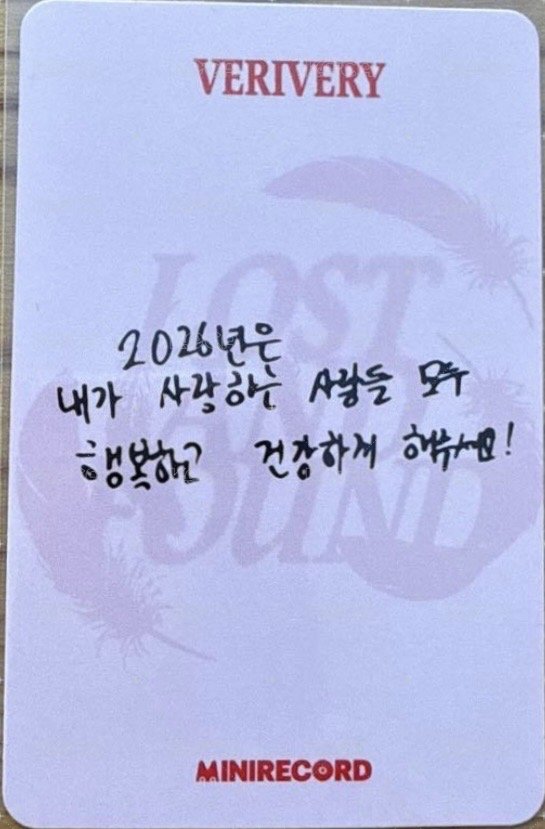 VERIVERY
LOST
AND
FOUND
2026년은
내가 사랑하는 사람들 모두
행복하고 건강하게 해주세요!
MINIRECORD